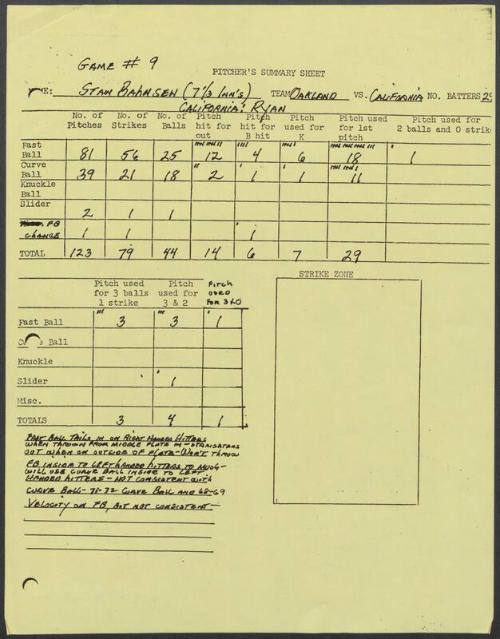 GAME # 9
PITCHER'S SUMMARY SHEET
STAN BAHNSEN (7 1/3 INN'S) TEAM OAKLAND VS. CALIFORNIA NO. BATTERS 29
CALIFORNIA: RYAN
No. of Pitches No. of Strikes No. of Balls Pitch hit for out Pitch hit for B hit Pitch used for K Pitch used for 1st pitch Pitch used for 2 balls and 0 strik
Fast Ball 81 56 25 12 4 6 18 1
Curve Ball 39 21 18 2 1 1 11
Knuckle Ball
Slider 2 1 1
FB
CHANGE 1 1 1
TOTAL 123 79 44 14 6 7 29
STRIKE ZONE
Pitch used for 3 balls 1 strike Pitch used for 3 & 2 PITCH USED FOR 3 & 0
Fast Ball 3 3 1
Ball
Knuckle
Slider 1
Misc.
TOTALS 3 4 1
FAST BALL TAILS IN ON RIGHT HANDED HITTERS
WHEN THROWN FROM MIDDLE PLATE IN - STRAIGHTENS
OUT WHEN ON OUTSIDE OF PLATE - WON'T THROW
FB INSIDE TO LEFT HANDED HITTERS TO MUCH -
WILL USE CURVE BALL INSIDE TO LEFT
HANDED HITTERS - NOT CONSISTENT WITH
CURVE BALL - 71-72 CURVE BALL AND 68-69
VELOCITY ON FB, BUT NOT CONSISTENT -